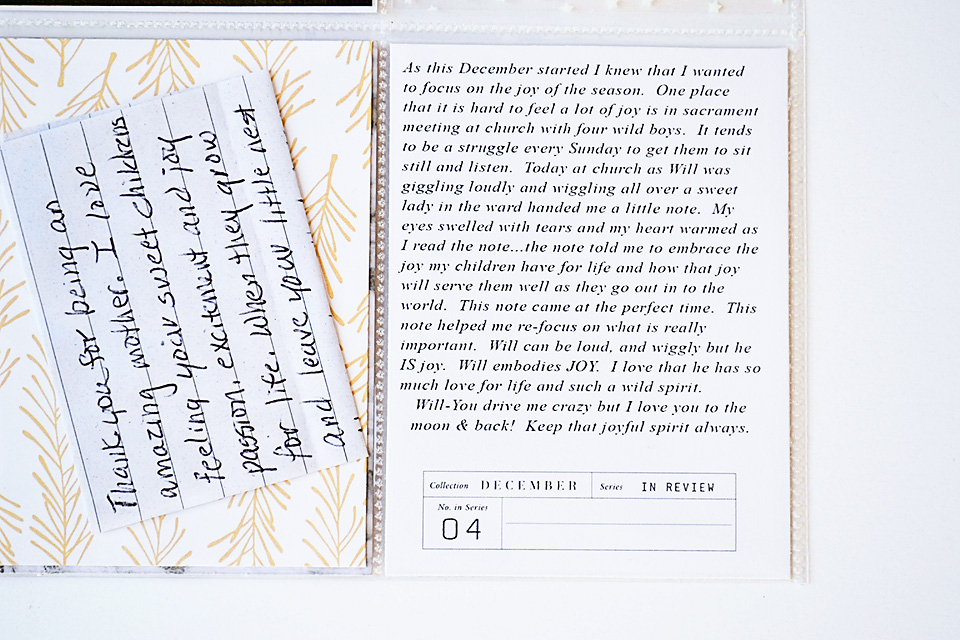 Thank you for being an
amazing mother. I love
feeling your sweet childrens
passion, excitement and joy
for life. When they grow
and leave your little nest
As this December started I knew that I wanted
to focus on the joy of the season. One place
that it is hard to feel a lot of joy is in sacrament
meeting at church with four wild boys. It tends
to be a struggle every Sunday to get them to sit
still and listen. Today at church as Will was
giggling loudly and wiggling all over a sweet
lady in the ward handed me a little note. My
eyes swelled with tears and my heart warmed as
I read the note...the note told me to embrace the
joy my children have for life and how that joy
will serve them well as they go out in to the
world. This note came at the perfect time. This
note helped me re-focus on what is really
important. Will can be loud, and wiggly but he
IS joy. Will embodies JOY. I love that he has so
much love for life and such a wild spirit.
Will-You drive me crazy but I love you to the
moon & back! Keep that joyful spirit always.
Collection DECEMBER Series IN REVIEW
No. in Series
04